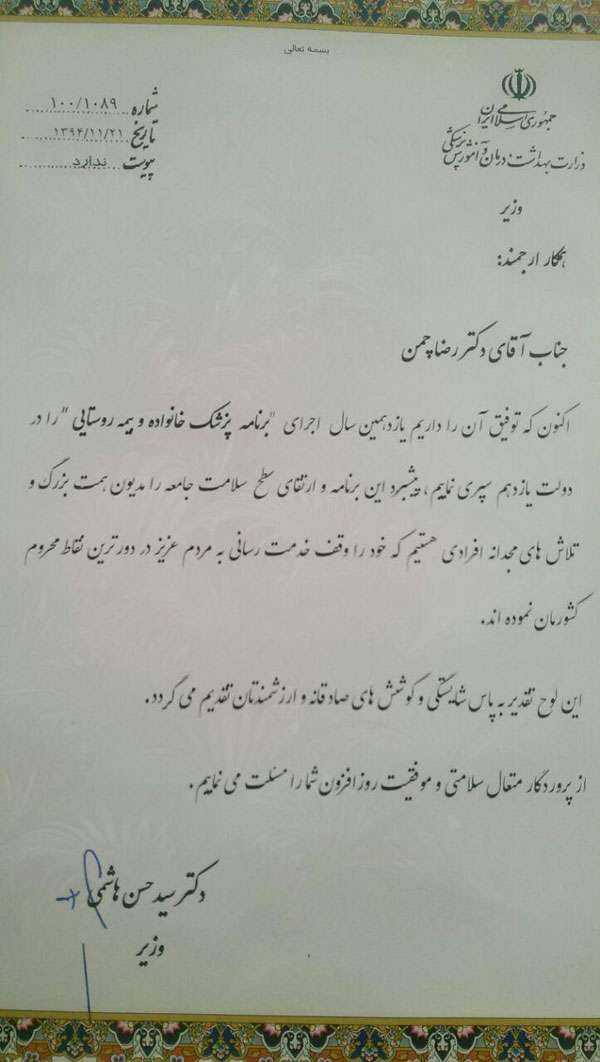 بسمه تعالی
جمهوری اسلامی ایران
وزارت بهداشت، درمان و آموزش پزشکی
وزیر
شماره ۱۰۰/۱۰۸۹
تاریخ ۱۳۹۴/۱۱/۲۱
پیوست ندارد
همکار ارجمند:
جناب آقای دکتر رضا چمن
اکنون که توفیق آن را داریم یازدهمین سال اجرای "برنامه پزشک خانواده و بیمه روستایی" را در
دولت یازدهم سپری نماییم، پیشبرد این برنامه و ارتقای سطح سلامت جامعه را مدیون همت بزرگ و
تلاش های مجدانه افرادی هستیم که خود را وقف خدمت رسانی به مردم عزیز در دورترین نقاط محروم
کشورمان نموده اند.
این لوح تقدیر به پاس شایستگی و کوشش های صادقانه و ارزشمندتان تقدیم می گردد.
از پروردگار متعال سلامتی و موفقیت روزافزون شما را مسئلت می نماییم.
دکتر سید حسن هاشمی
وزیر